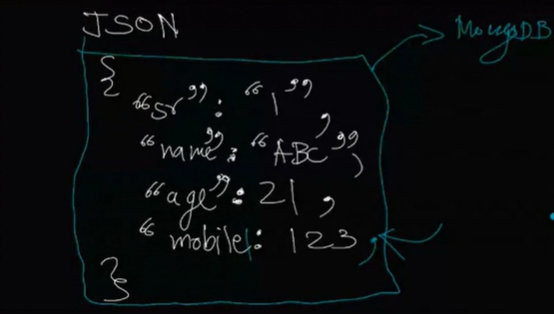 JSON
MongoDB
{
"sr": "1",
"name": "ABC",
"age": 21,
"mobile: 123,
}